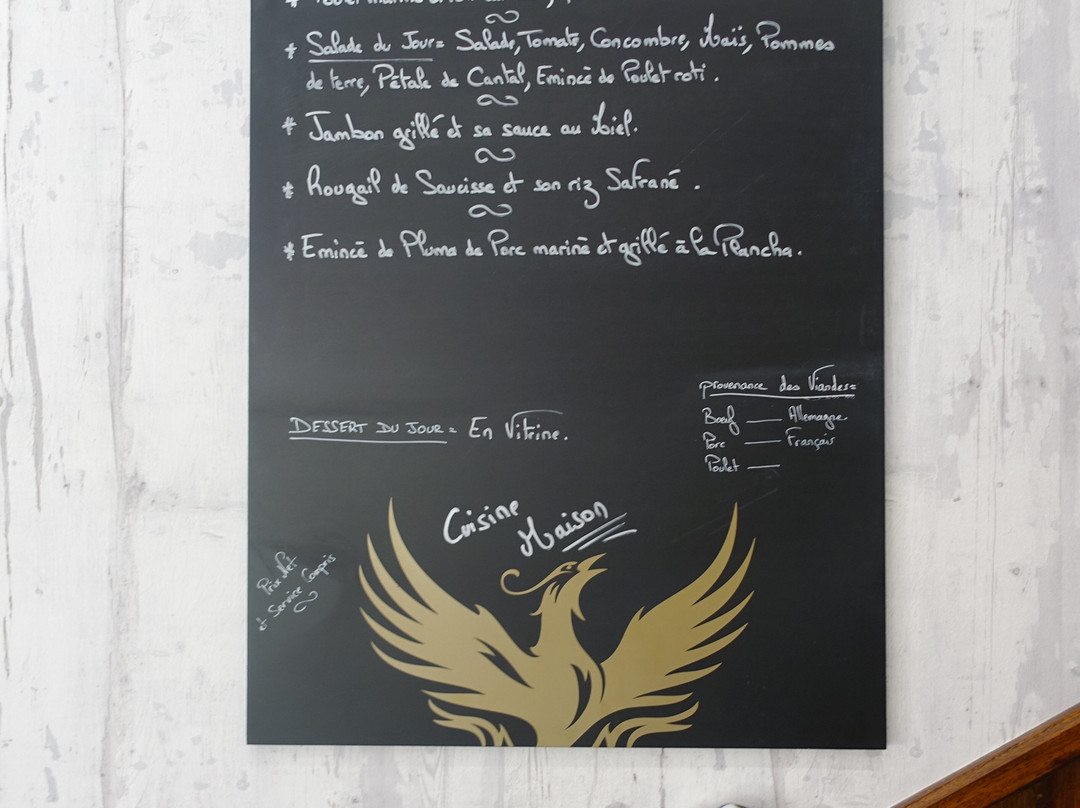 * Salade du Jour = Salade, Tomate, Concombre, Maïs, Pommes
de terre, Pétale de Cantal, Emincé de Poulet roti.
* Jambon grillé et sa sauce au Miel.
* Rougail de Saucisse et son riz Safrané.
* Emincé de Pluma de Porc mariné et grillé à la Plancha.
provenance des Viandes =
Boeuf — Allemagne
Porc — Français
Poulet —
DESSERT DU JOUR = En Vitrine.
Cuisine
Maison
Prix Net
et Service Compris